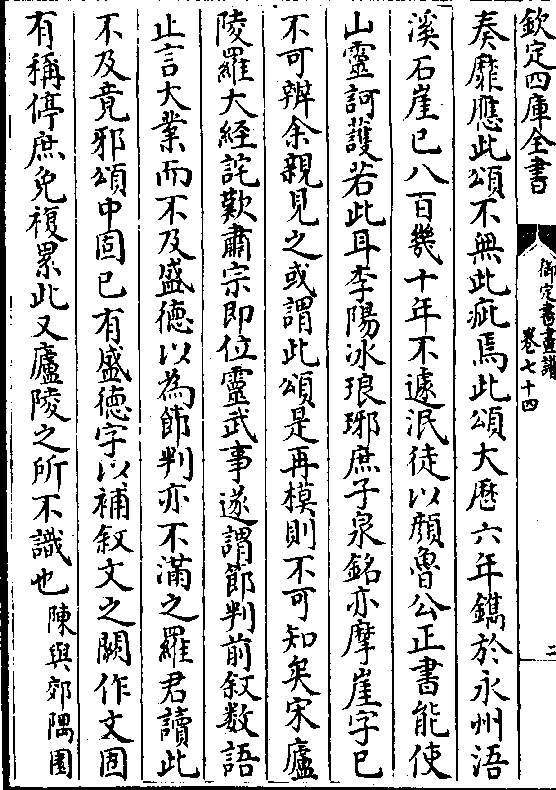 欽定四庫全書
御定書畫譜
卷七十四
二
奏靡應此頌不無此疵焉此頌大厯六年鐫於永州浯
溪石崖已八百幾十年不遽泯徒以顔魯公正書能使
山靈訶護若此耳李陽冰琅琊庶子泉銘亦摩崖字已
不可辨余親見之或謂此頌是再模則不可知矣宋廬
陵羅大經詫歎肅宗即位靈武事遂謂節判前叙数語
止言大業而不及盛德以為節判亦不滿之羅君讀此
不及竟邪頌中固已有盛德字以補叙文之闕作文固
有稱停庶免複累此又廬陵之所不識也陳與郊隅園